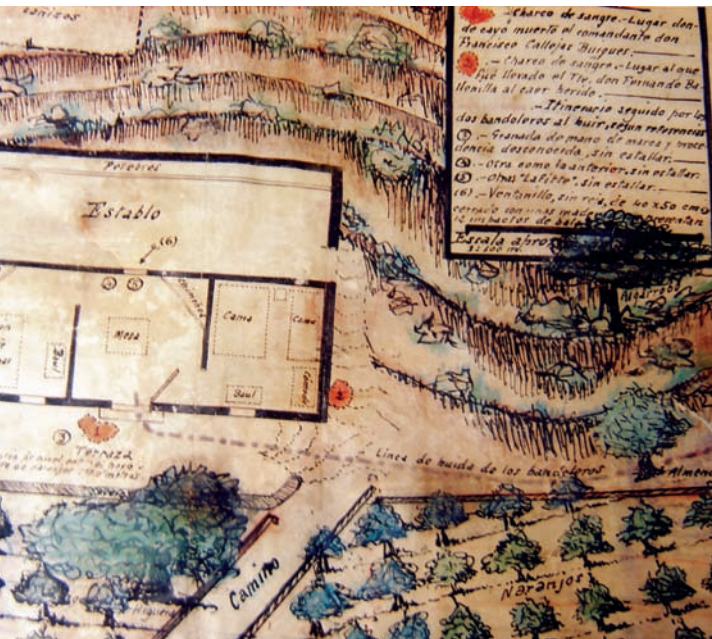 cañizos
Charco de sangre.-Lugar don-
de cayó muerto el comandante don
Francisco Callejas Buigues.
.-Charco de sangre-Lugar al que
fué llevado el Tte. don Fernando Ba
llenilla al caer herido.
.-Itinerario seguido por lo
dos bandoleros al huir, según referencias
.-Granada de mano de marca y proce
dencia desconocida, sin estallar.
.-Otra como la anterior, sin estallar.
.-Otras "Lafitte", sin estallar.
(6).-Ventanillo, sin reja, de 40 x 50 cm
cerrado con unas
12 impactos de
Escala aprox
Pesebres
Establo
(6)
Algarrobo
Chimenea
Cama
Cama
Mesa
Baul
Baul
Terraza
Línea de huida de los bandoleros
Almend
Camino
Naranjos
Higuera